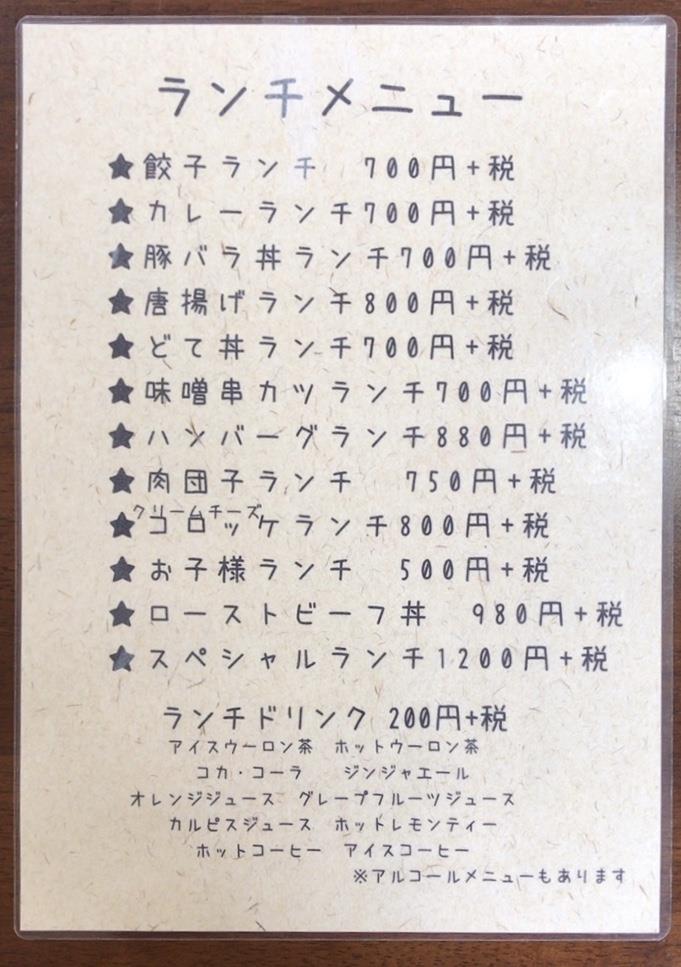 ランチメニュー
★餃子ランチ 700円+税
★カレーランチ700円+税
★豚バラ丼ランチ700円+税
★唐揚げランチ800円+税
★どて丼ランチ700円+税
★味噌串カツランチ700円+税
★ハンバーグランチ880円+税
★肉団子ランチ 750円+税
クリームチーズ
★コロッケランチ800円+税
★お子様ランチ 500円+税
★ローストビーフ丼 980円+税
★スペシャルランチ1200円+税
ランチドリンク 200円+税
アイスウーロン茶 ホットウーロン茶
コカ・コーラ ジンジャエール
オレンジジュース グレープフルーツジュース
カルピスジュース ホットレモンティー
ホットコーヒー アイスコーヒー
※アルコールメニューもあります